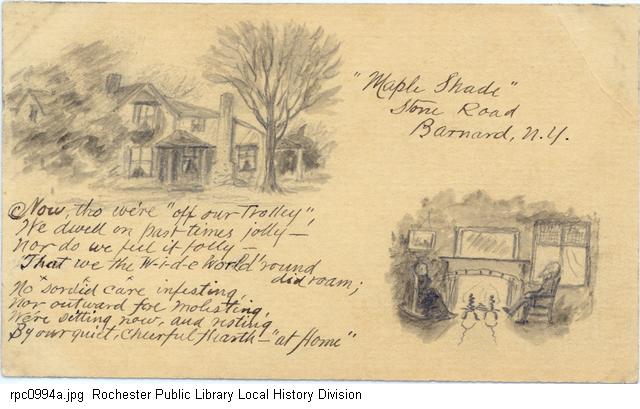 "Maple Shade"
Stone Road
Barnard, N.Y.
Now, tho we're "off our Trolley",
We dwell on past times jolly—
Nor do we feel it folly—
That we the W-i-d-e World 'round
did roam;
No sordid care infesting,
Nor outward foe molesting,
We're sitting now, and resting,
By our quiet, cheerful Hearth—"at Home"
rpc0994a.jpg Rochester Public Library Local History Division